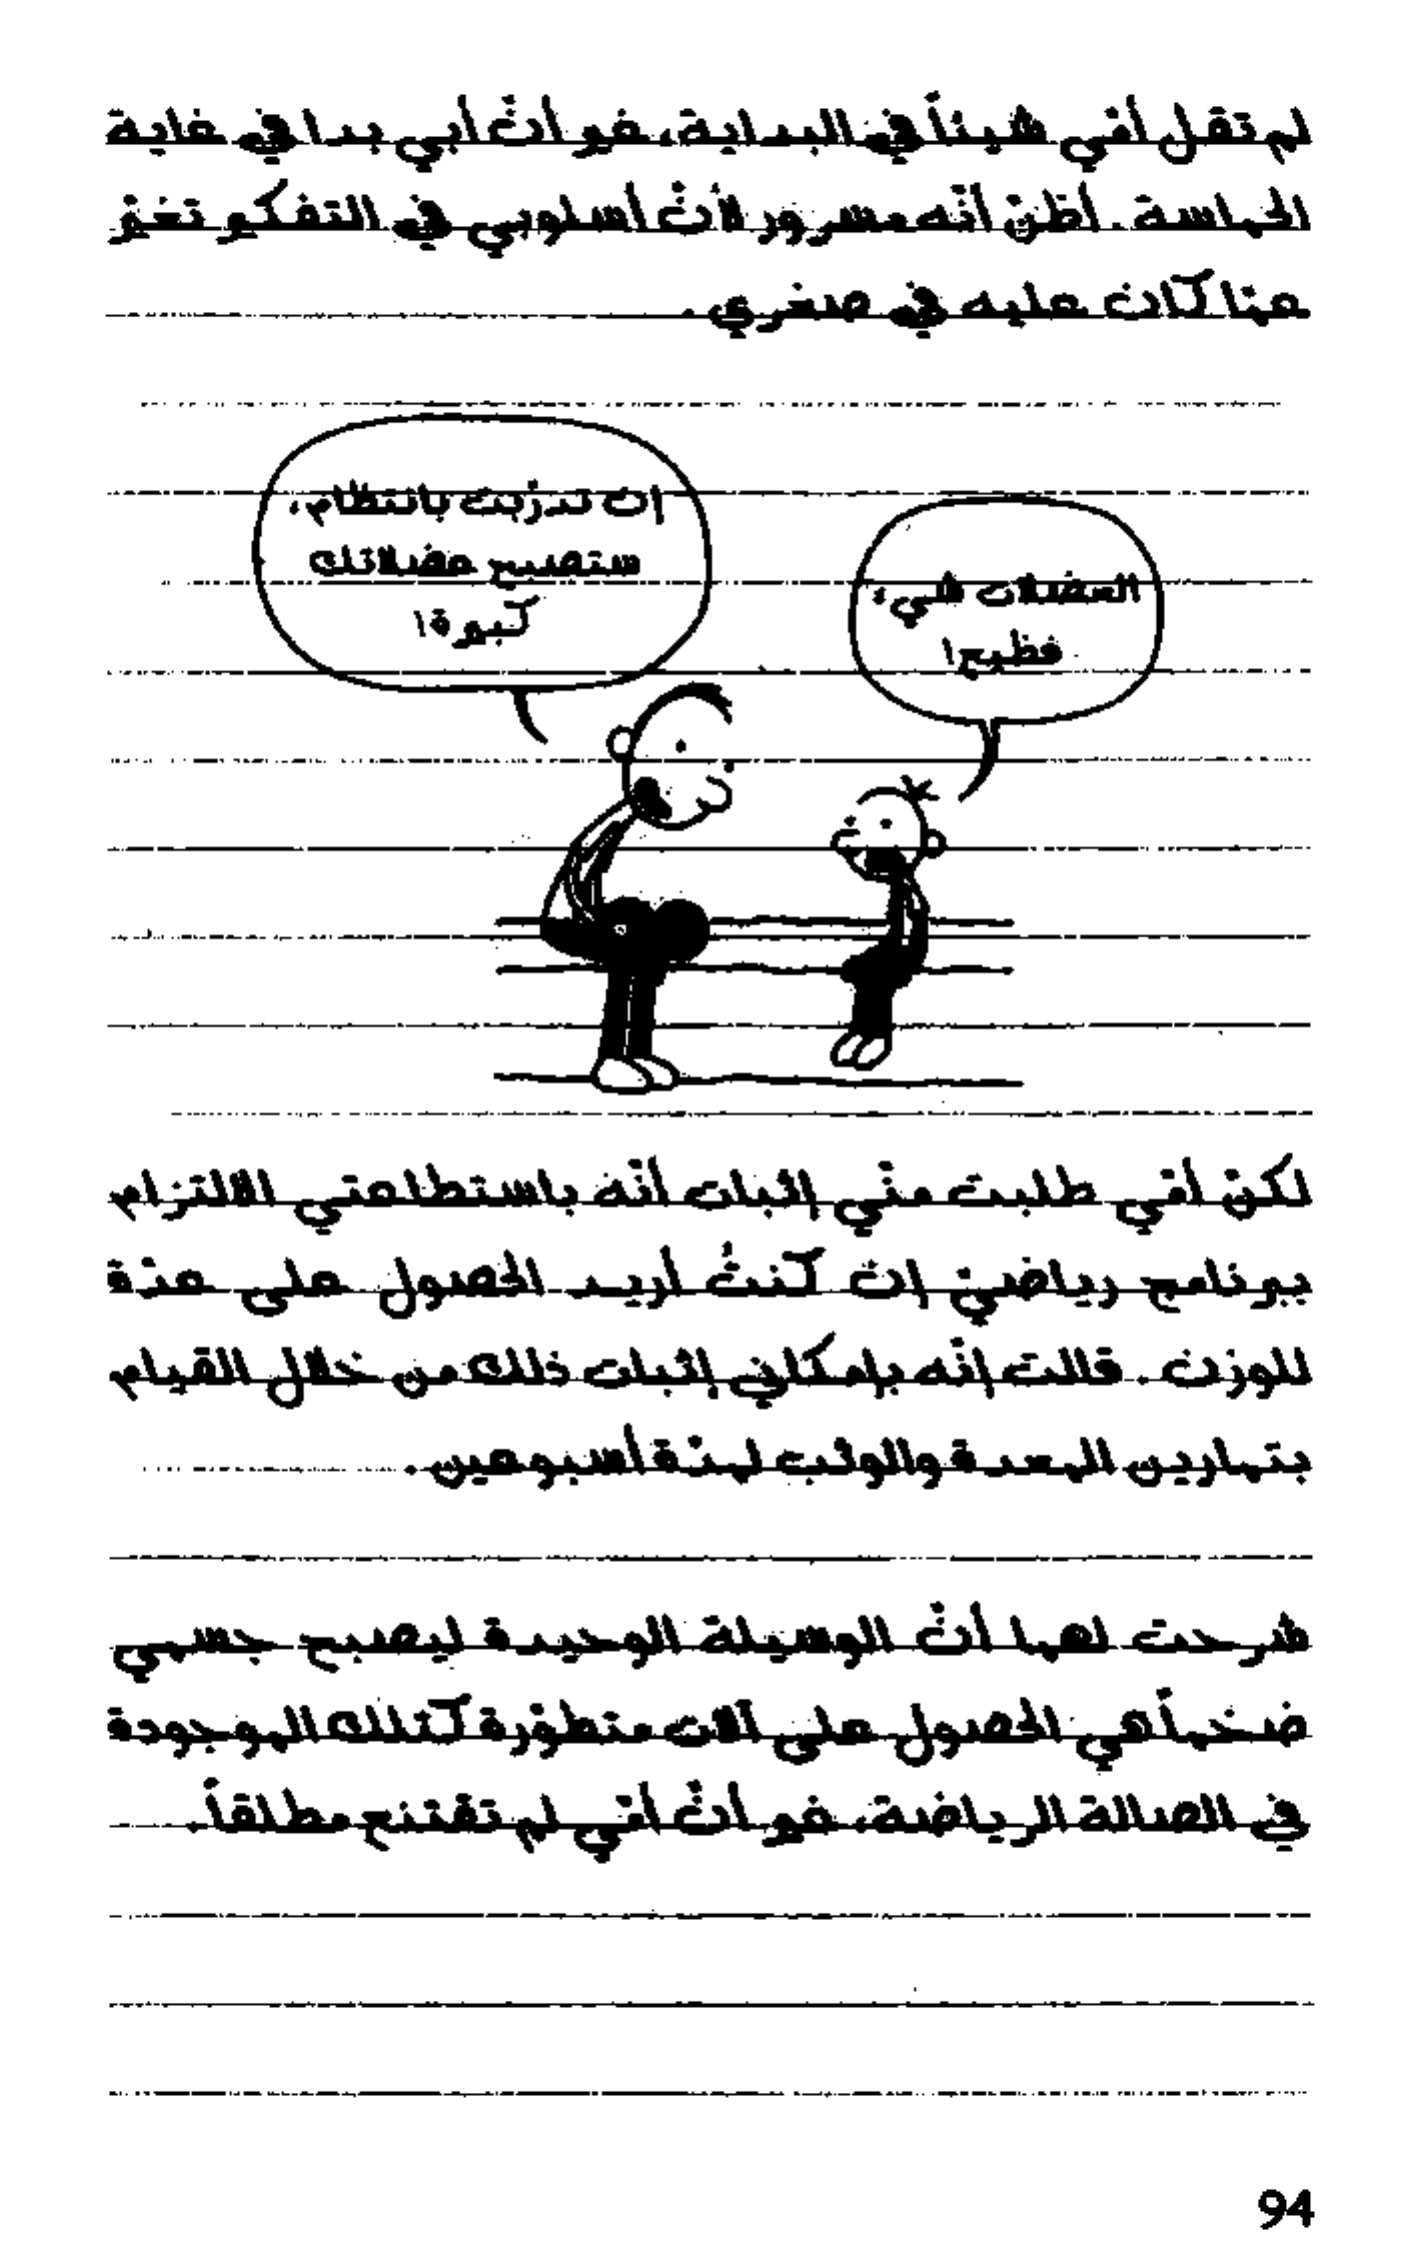 لم تقل أمّي شيئاً في البداية، غير أنّ أبي بدا في غاية
الحماسة. أظنّ أنّه مسرور لأنّ أسلوبي في التفكير تغيّر
عمّا كان عليه في صغري.
إن تدرّبت بانتظام،
ستصبح عضلاتك
كبيرة!
العضلات شيء
فظيع!
لكنّ أمّي طلبت منّي إثبات أنّه باستطاعتي الالتزام
ببرنامج رياضيّ إن كنتُ أريد الحصول على عدّة
للوزن. قالت إنّه بإمكاني إثبات ذلك من خلال القيام
بتمارين المعدة والوثب لمدّة أسبوعين.
شرحت لهما أنّ الوسيلة الوحيدة ليصبح جسمي
ضخماً هي الحصول على آلات متطوّرة كتلك الموجودة
في الصالة الرياضة، غير أنّ أمّي لم تقتنع مطلقاً.
94